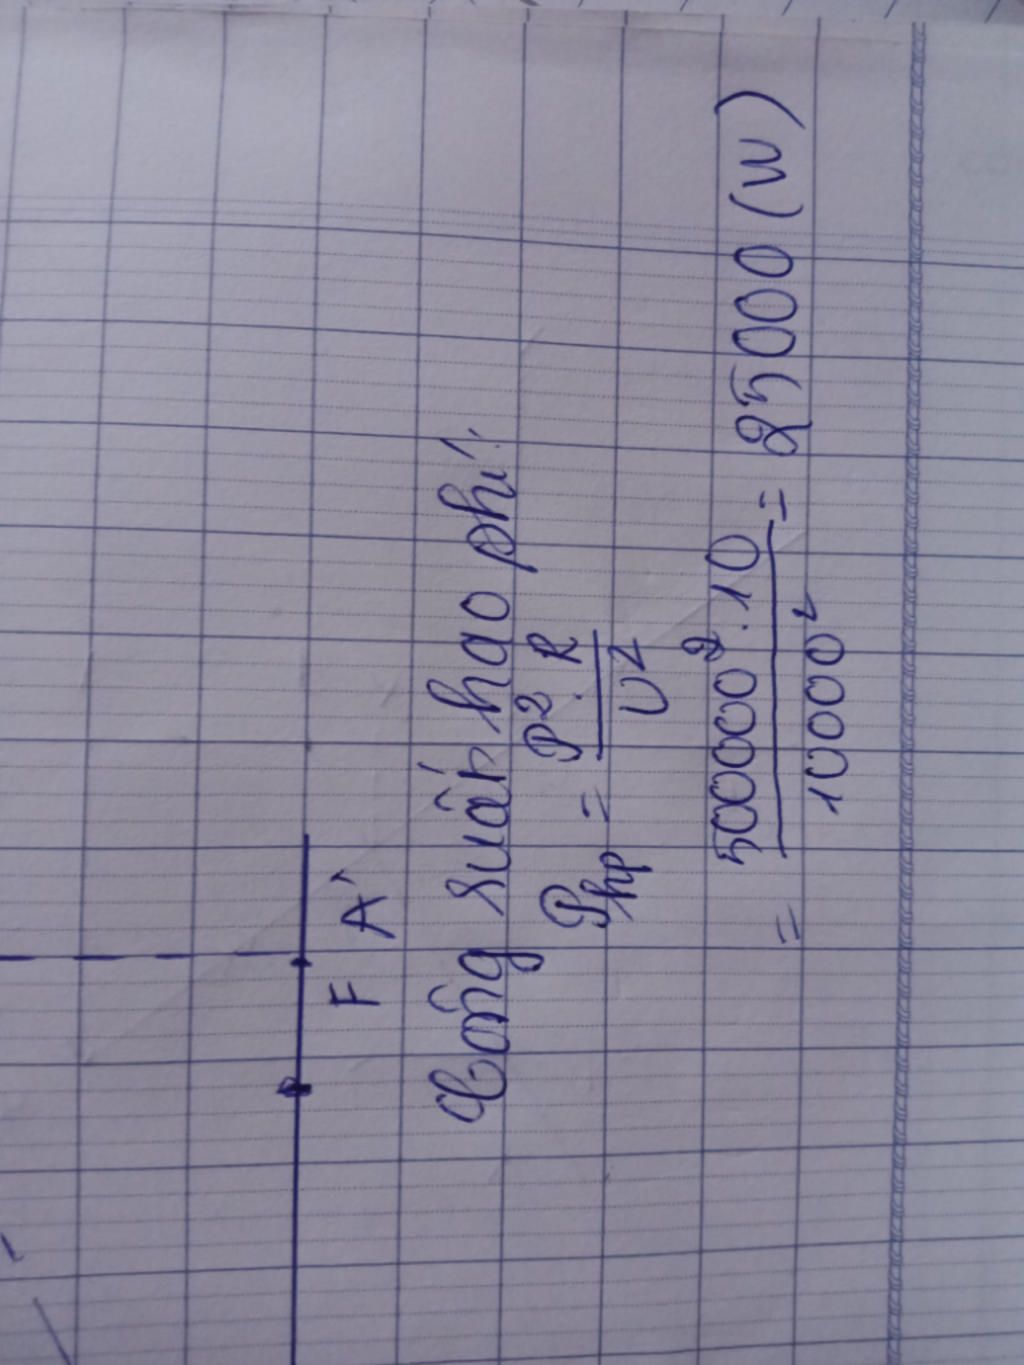 F A'
Công suất hao phí:
P_hp = P². R / U²
= 500000². 10 / 10000² = 25000 (W)